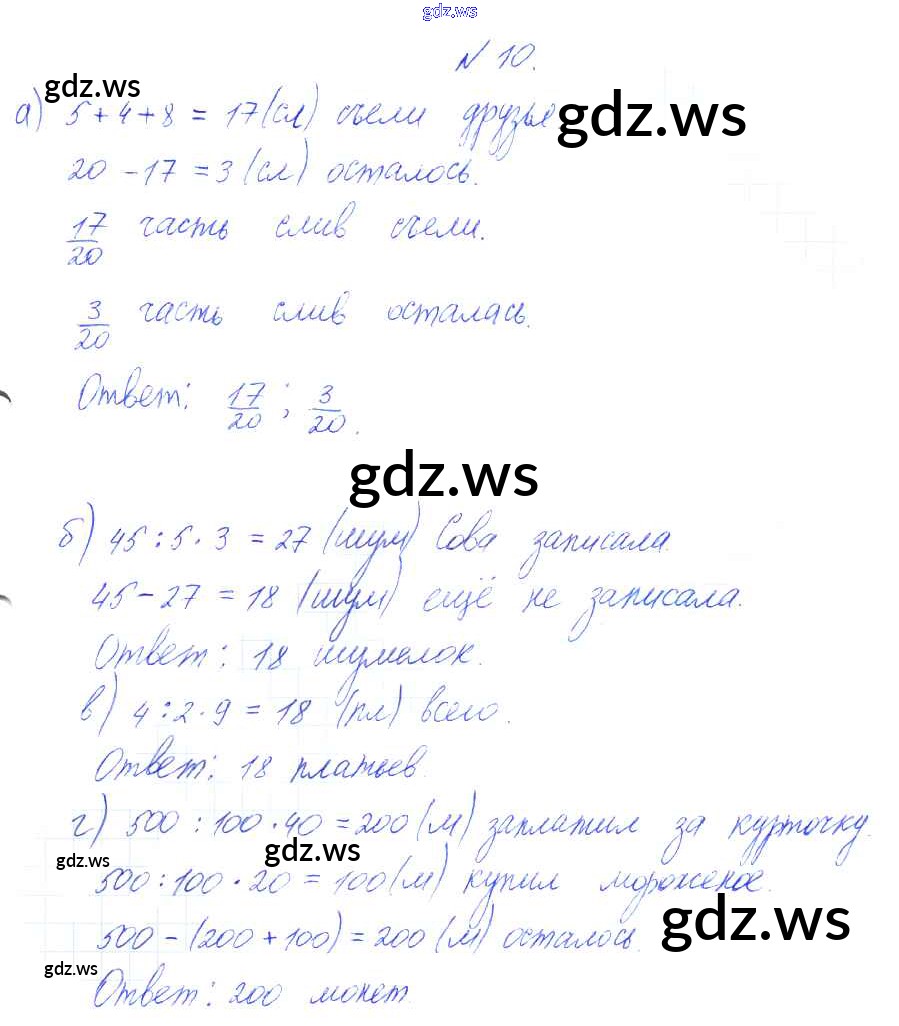 gdz.ws
№ 10.
gdz.ws
gdz.ws
а) 5 + 4 + 8 = 17 (сл) съели друзья
20 - 17 = 3 (сл) осталось.
17/20 часть слив съели.
3/20 часть слив осталась.
Ответ: 17/20; 3/20.
gdz.ws
б) 45 : 5 · 3 = 27 (шум) Сова записала.
45 - 27 = 18 (шум) ещё не записала.
Ответ: 18 шумелок.
в) 4 : 2 · 9 = 18 (пл) всего.
Ответ: 18 платьев.
г) 500 : 100 · 40 = 200 (м) заплатил за курточку.
gdz.ws
gdz.ws
500 : 100 · 20 = 100 (м) купил мороженое.
gdz.ws
500 - (200 + 100) = 200 (м) осталось.
gdz.ws
Ответ: 200 монет.